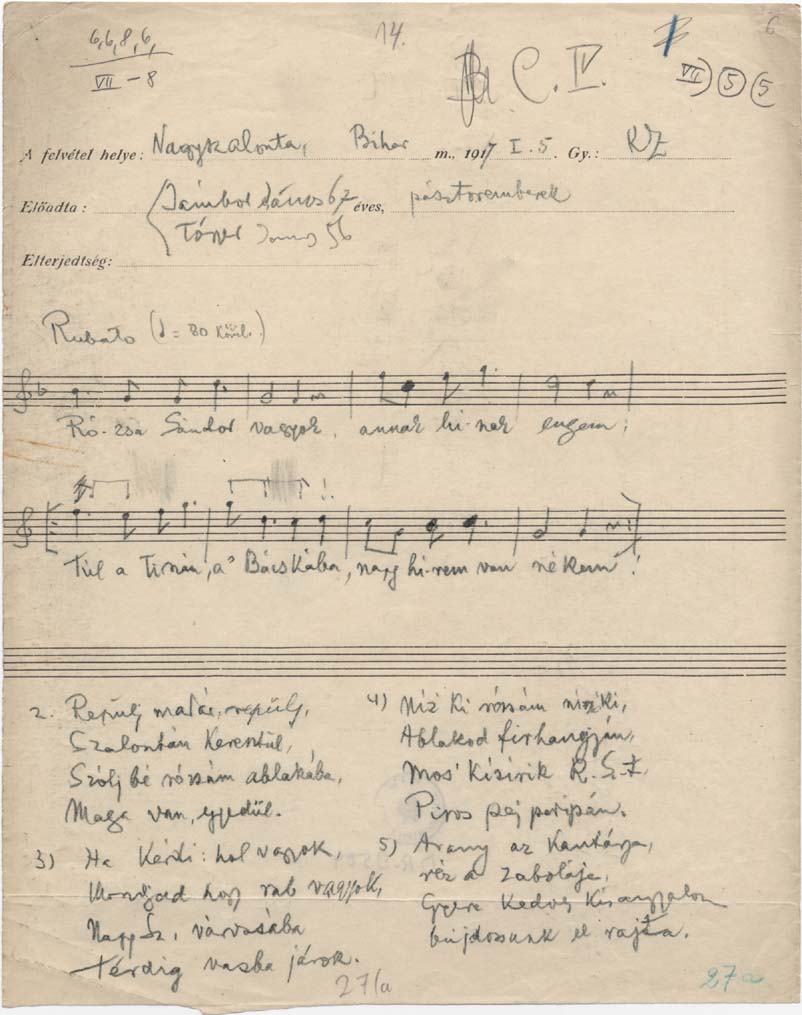 6,6,8,6,
VII – 8
14.
6
C. IV.
VII) 5 5
A felvétel helye: Nagyszalonta, Bihar m., 1917 I. 5. Gy.: KZ
Előadta: Jámbor János 67 éves, pásztoremberek
János 56
Elterjedtség:
Rubato (♩ = 80 körül.)
Ró-zsa Sándor vagyok, annak hí-nak engem;
Túl a Tiszán, a' Bácskába, nagy hí-rem van nékem!
2. Repülj madár, repülj,
Szalontán keresztül,
Szólj bé rózsám ablakába,
Maga van, egyedül.
3) Ha kérdi: hol vagyok,
Mondjad hogy rab vagyok,
Nagy Sz. városába
térdig vasba járok.
4) Níz' ki rózsám níz' ki,
Ablakod firhangján,
Mos' kísírik R. S-t
Piros pej paripán.
5) Arany az kantárja,
réz a zabolája,
Gyere kedves kisangyalom
bújdossunk el rajta.
27/a
27a